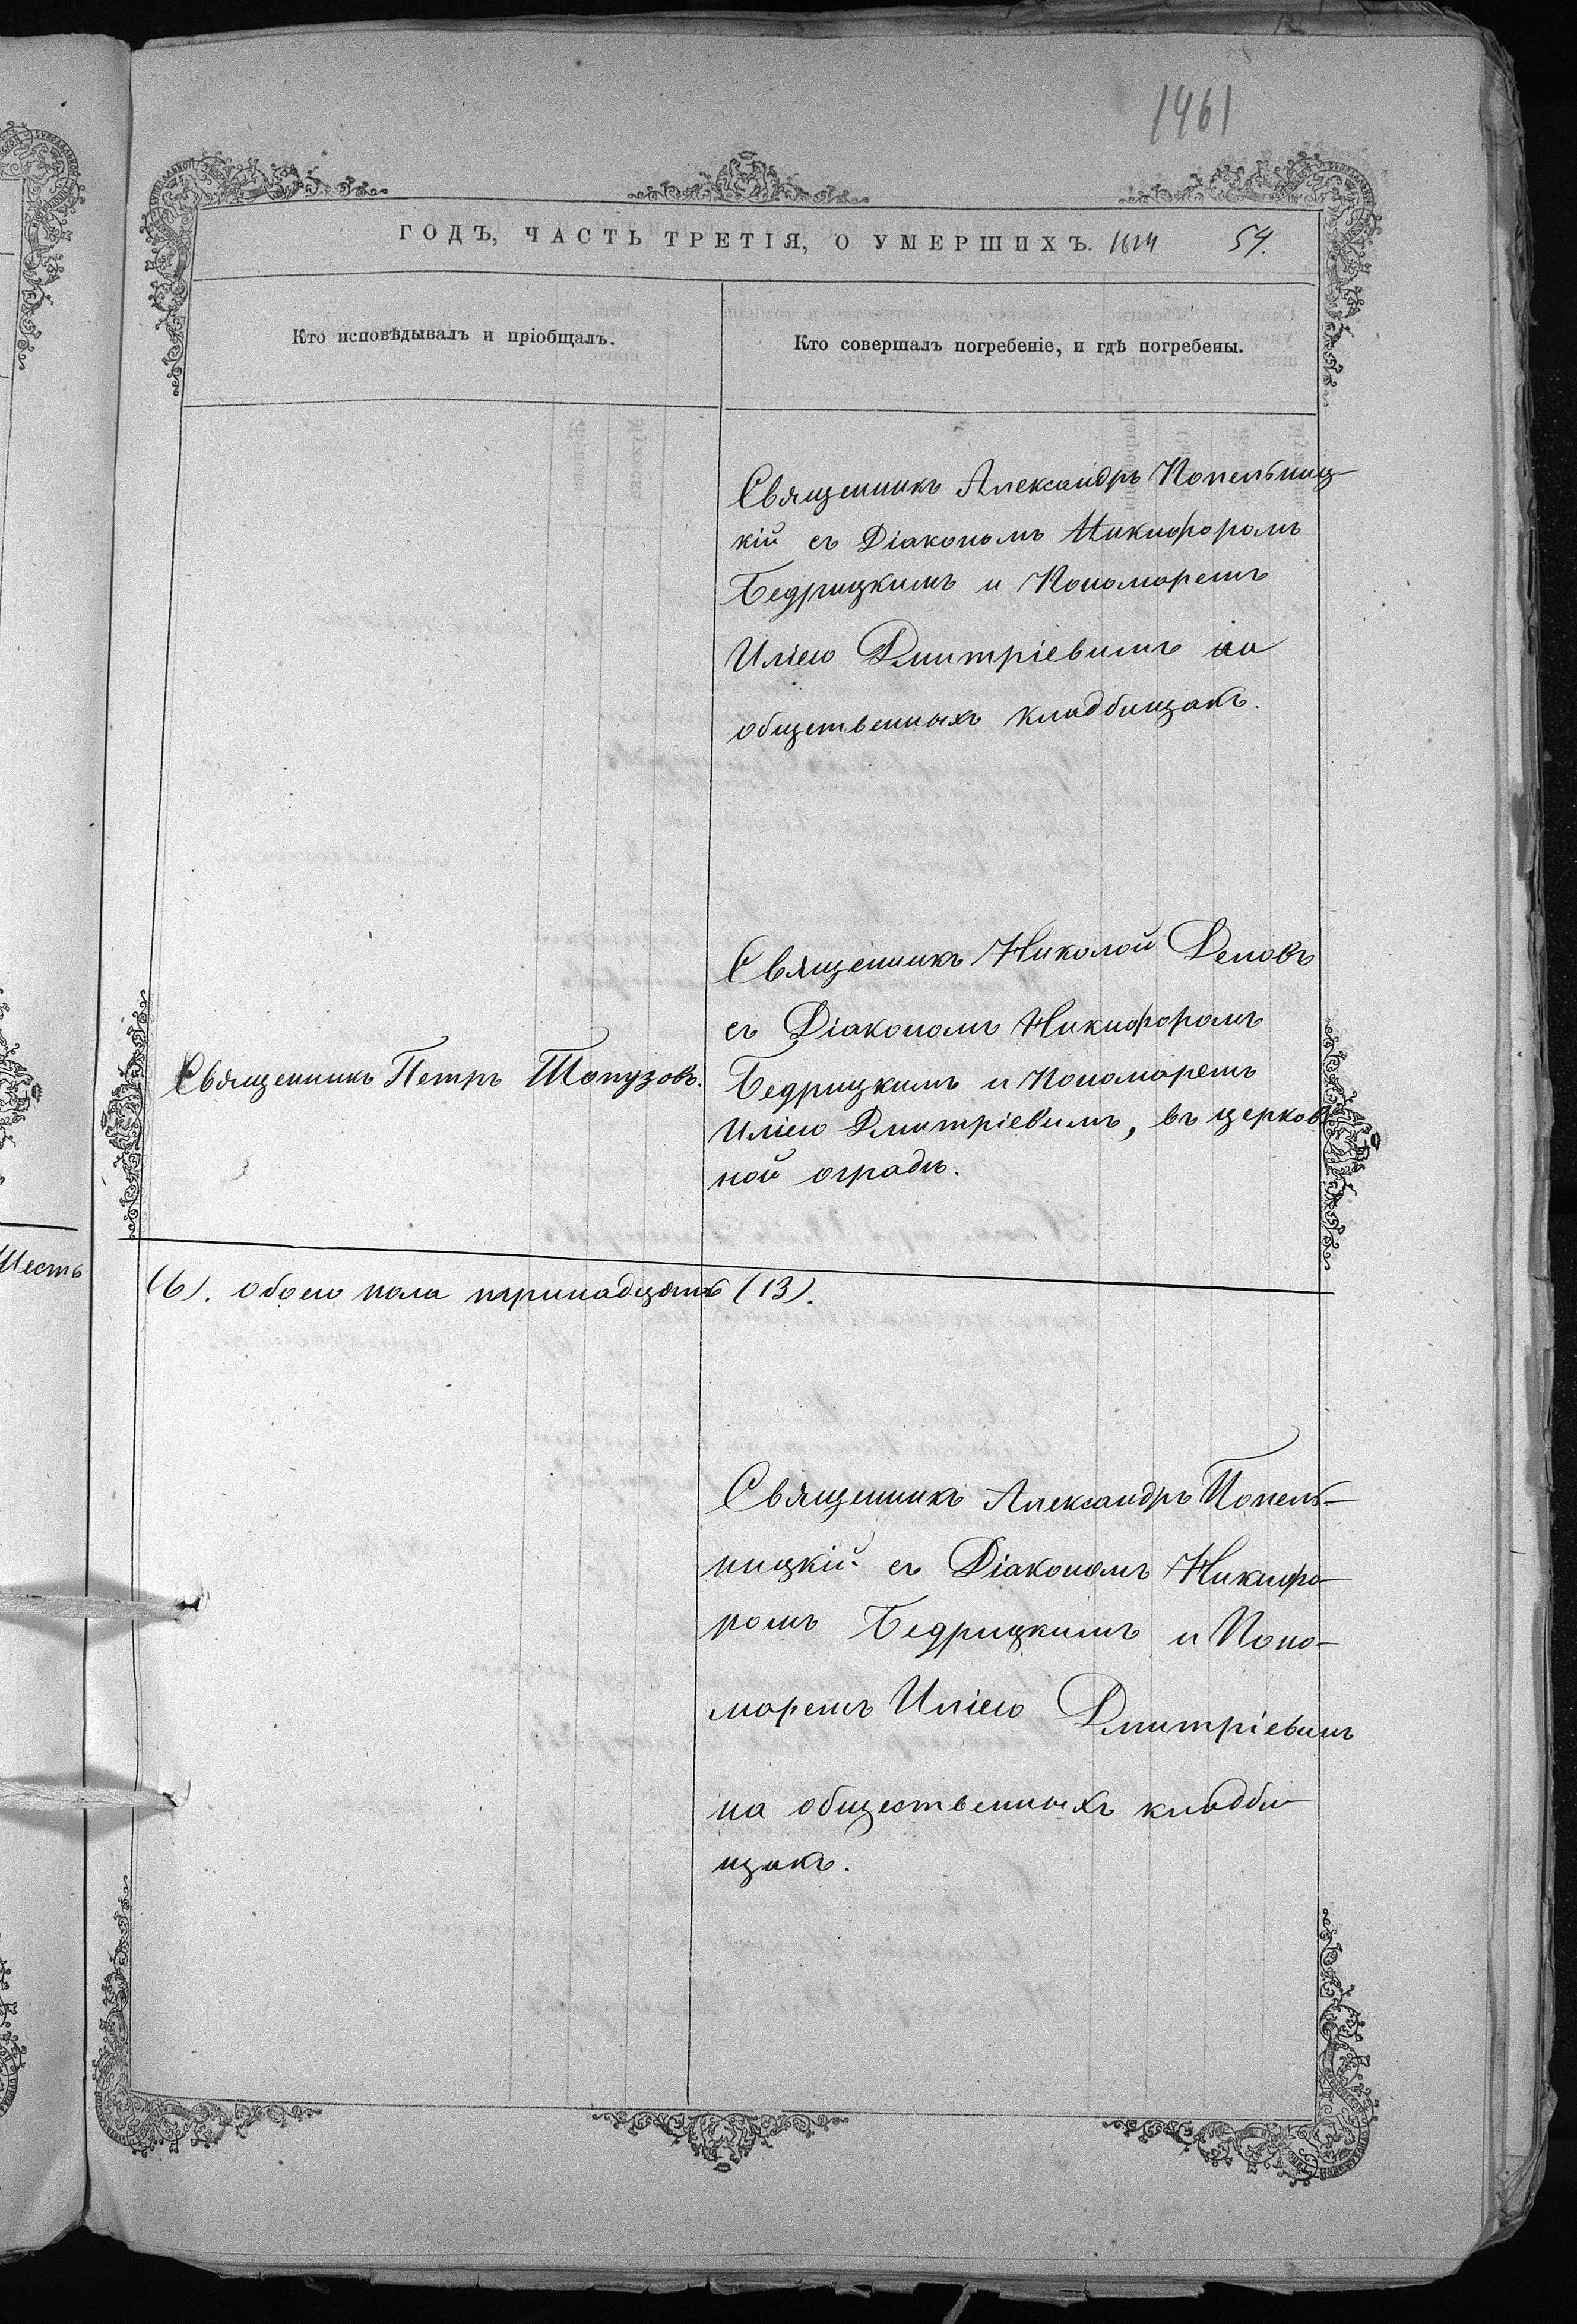 1961
ГОДЪ, ЧАСТЬ ТРЕТІЯ, О УМЕРШИХЪ. 54.
Кто исповѣдывалъ и пріобщалъ.
Кто совершалъ погребеніе, и гдѣ погребены.
Священникъ Александръ Попельниц-
кій съ Діакономъ Никифоромъ
Бедрицкимъ и Пономоремъ
Иліею Дмитріевымъ на
общественныхъ кладбищахъ.
Священникъ Петръ Топузовъ.
Священникъ Николой Деловъ
съ Діакономъ Никифоромъ
Бедрицкимъ и Пономоремъ
Иліею Дмитріевымъ, въ церков
ной оградѣ.
Шесть
(6). обоего пола тринадцать (13).
Священникъ Александръ Попель-
ницкій съ Діакономъ Никифо-
ромъ Бедрицкимъ и Поно-
моремъ Иліею Дмитріевымъ
на общественныхъ кладби-
щахъ.